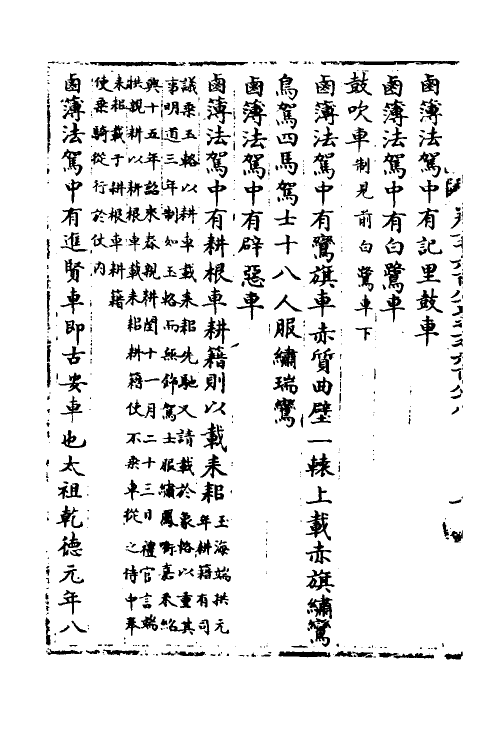 鹵簿法駕中有記里鼓車
鹵簿法駕中有白鷺車
鼓吹車制見前白鷺車下
鹵簿法駕中有鸞旗車赤質曲壁一轅上載赤旗繡鸞
鳥駕四馬駕士十八人服繡瑞鸞
鹵簿法駕中有辟惡車
鹵簿法駕中有耕根車耕籍則以載耒耜玉海端拱元
年耕籍有司
議乘玉輅以耕車載耒耜先馳又請載於象輅以重其
事明道三年制如玉輅而無飾駕士服繡鳳銜嘉禾紹
興十五年詔來春親耕閏十一月二十三日禮官言端
拱親耕以耕根車載耒耜耕籍使不乘車從之侍中奉
耒耜載于耕根車耕籍
使乘騎從行於仗內
鹵簿法駕中有進賢車即古安車也太祖乾德元年八